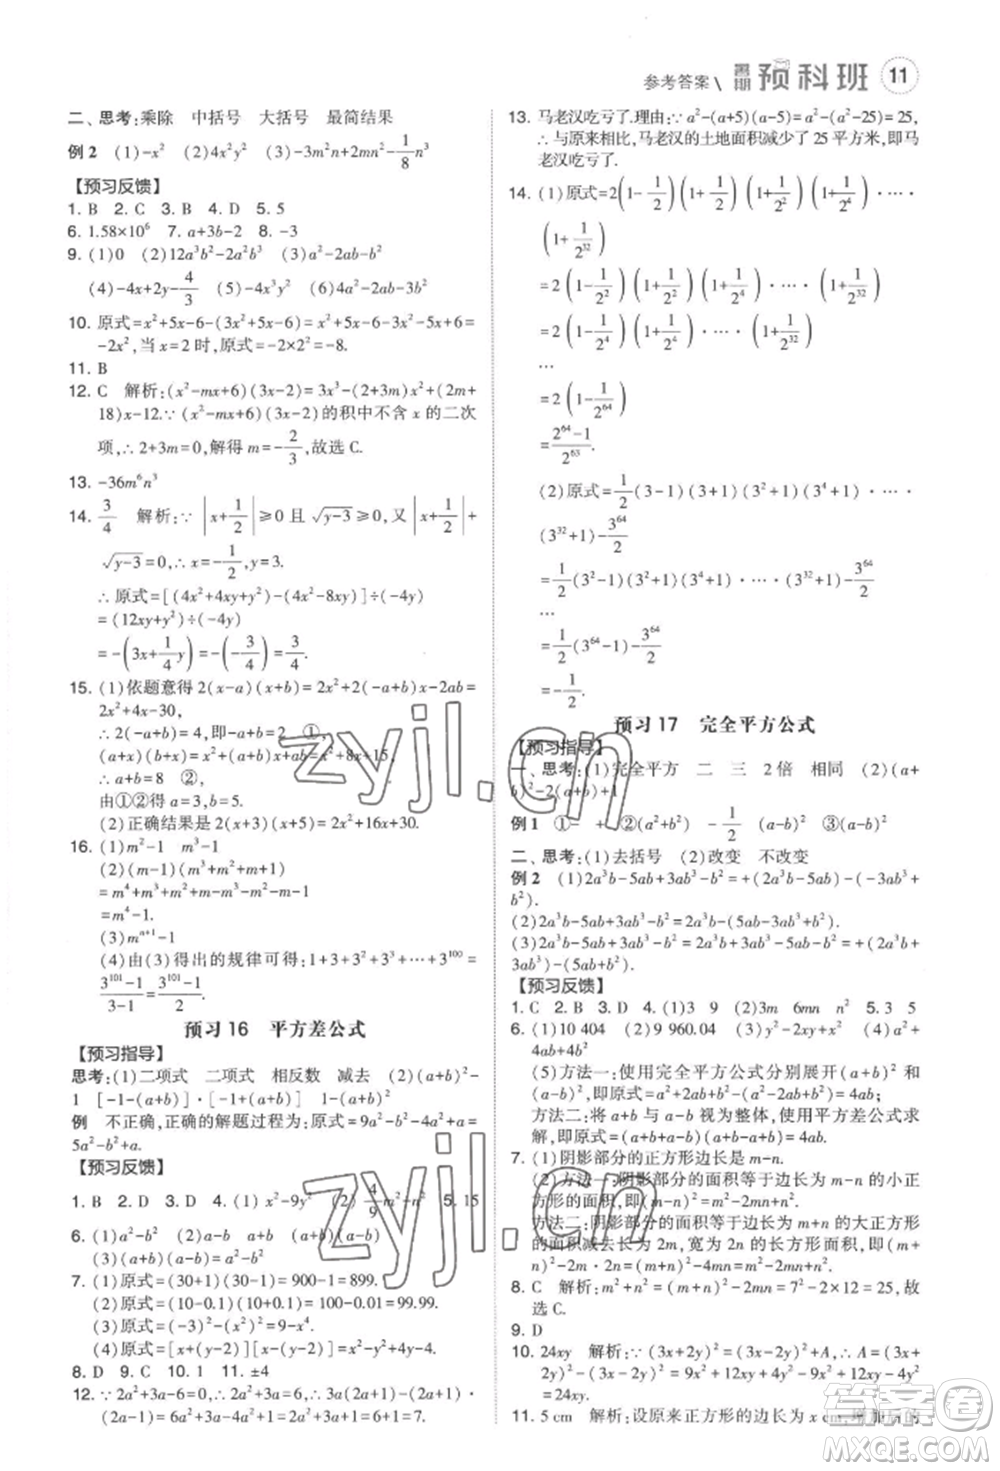 参考答案 \ 暑期 预科班 11
二、思考:乘除 中括号 大括号 最简结果
例 2 (1)-x² (2)4x²y² (3)-3m²n+2mn²-1/8n³
【预习反馈】
1. B 2. C 3. B 4. D 5. 5
6. 1.58×10⁶ 7. a+3b-2 8. -3
9. (1)0 (2)12a³b²-2a²b³ (3)-2a²b
(4)-4x+2y-4/3 (5)-4x³yz (6)2a²b²
10. 原式=x²+5x-6-(3x²+5x)=x²+5x-6-3x²-5x
=-2x²,当 x=2 时,原式=-2×2²=-8.
11. B
12. C 解析:(x²-mx+6)(3x-2)=3x³-(2+3m)x²+(2m+
18)x-12.∵(x²-mx+6)(3x-2)的积中不含 x 的二次
项,∴2+3m=0,解得 m=-2/3,故选 C.
13. -36m⁶n³
14. 3/4 解析:∵|x+1/2|≥0 且 √(y-3)≥0,又|x+1/2|+
√(y-3)=0,∴x=-1/2,y=3.
∴原式=[(4x²+4xy+y²)-(4x²-8xy)]÷(-4y)
=(12xy+y²)÷(-4y)
=-(3x+1/4y)=-(-3/4)=3/4.
15. (1)依题意得 2(x-a)(x+b)=2x²+2(b-a)x-2ab=
2x²+4x-30,
∴2(b-a)=4,即-a+b=2 ①,
(x+a)(x+b)=x²+(a+b)x+ab=x²+8x+15,
∴a+b=8 ②,
由①②得 a=3,b=5.
(2)正确结果是 2(x+3)(x+5)=2x²+16x+30.
16. (1)m²-1 m³-1
(2)(m-1)(m³+m²+m+1)
=m⁴+m³+m²+m-m³-m²-m-1
=m⁴-1.
(3)mⁿ⁺¹-1
(4)由(3)得出的规律可得:1+3+3²+…+3¹⁰⁰=
(3¹⁰¹-1)/(3-1)=(3¹⁰¹-1)/2.
预习 16 平方差公式
【预习指导】
思考:(1)二项式 二项式 相反数 减去 (2)(a+b)²-
1 [-1-(a+b)]·[-1+(a+b)] 1-(a+b)²
例 不正确,正确的解题过程为:原式=9a²-b²-4a²+a=
5a²-b²+a.
【预习反馈】
1. B 2. D 3. D 4. (1)x²-9y² (2)4/9m²-n² 5. 15
6. (1)a²-b² (2)a-b a+b (a+b)(a-b)
7. (1)原式=(30+1)(30-1)=900-1=899.
(2)原式=(10-0.1)(10+0.1)=100-0.01=99.99.
(3)原式=(-3)²-(x²)²=9-x⁴.
(4)原式=[x+(y-2)][x-(y-2)]=x²-y²+4y-4.
8. D 9. C 10. 1 11. ±4
12. ∵2a²+3a-6=0,∴2a²+3a=6,∴3a(2a+1)-(2a+1)
(2a-1)=6a²+3a-4a²+1=2a²+3a+1=6+1=7.
13. 马老汉吃亏了.理由:∵a²-(a+5)(a-5)=a²-(a²-25)=25,
∴与原来相比,马老汉的土地面积减少了 25 平方米,即马
老汉吃亏了.
14. (1)原式=2(1-1/2)(1+1/2)(1+1/2²)(1+1/2⁴)·…·
(1+1/2³²)
=2(1-1/2²)(1+1/2²)(1+1/2⁴)·…·(1+1/2³²)
=2(1-1/2⁴)(1+1/2⁴)·…·(1+1/2³²)
…
=2(1-1/2⁶⁴)
=(2⁶⁴-1)/2⁶³.
(2)原式=1/2(3-1)(3+1)(3²+1)(3⁴+1)·…·
(3³²+1)-3⁶⁴/2
=1/2(3²-1)(3²+1)(3⁴+1)·…·(3³²+1)-3⁶⁴/2
…
=1/2(3⁶⁴-1)-3⁶⁴/2
=-1/2.
预习 17 完全平方公式
【预习指导】
一、思考:(1)完全平方 二 三 2 倍 相同 (2)(a+
b)²-2(a+b)+1
例 1 ①- + ②(a²+b²) -1/2 (a-b)² ③(a-b)²
二、思考:(1)去括号 (2)改变 不改变
例 2 (1)2a³b-5ab+3ab³-b²=+(2a³b-5ab)-(-3ab³+
b²).
(2)2a³b-5ab+3ab³-b²=2a³b-(5ab-3ab³+b²).
(3)2a³b-5ab+3ab³-b²=2a³b+3ab³-5ab-b²=(2a³b+
3ab³)-(5ab+b²).
【预习反馈】
1. C 2. B 3. D 4. (1)3 9 (2)3m 6mn n² 5. 3 5
6. (1)10 404 (2)9 960.04 (3)y²-z²-x²+2xz (4)a²+
4ab+4b²-1
(5)方法一:使用完全平方公式分别展开(a+b)²和
(a-b)²,即原式=a²+2ab+b²-a²+2ab-b²=4ab;
方法二:将 a+b 与 a-b 视为整体,使用平方差公式求
解,原式=(a+b+a-b)(a+b-a+b)=4ab.
7. (1)阴影部分的正方形边长是 m-n.
(2)方法一:阴影部分的面积等于边长为 m-n 的小正
方形的面积,即(m-n)²=m²-2mn+n²;
方法二:阴影部分的面积等于边长为 m+n 的大正方形
的面积减去长为 2m,宽为 2n 的长方形面积,即(m+
n)²-2m·2n=(m+n)²-4mn=m²-2mn+n².
8. C 解析:(m-n)²=(m+n)²-4mn=7²-2×12=25.故
选 C.
9. D
10. 24xy 解析:∵(3x+2y)²=(3x-2y)²+A,∴A=(3x+
2y)²-(3x-2y)²=9x²+12xy+4y²-9x²+12xy-4y²
=24xy.
11. 5 cm 解析:设原来正方形的边长为 x cm,增加后的
zyjl.cn
zyjl.cn
答案圈
MXQE.COM